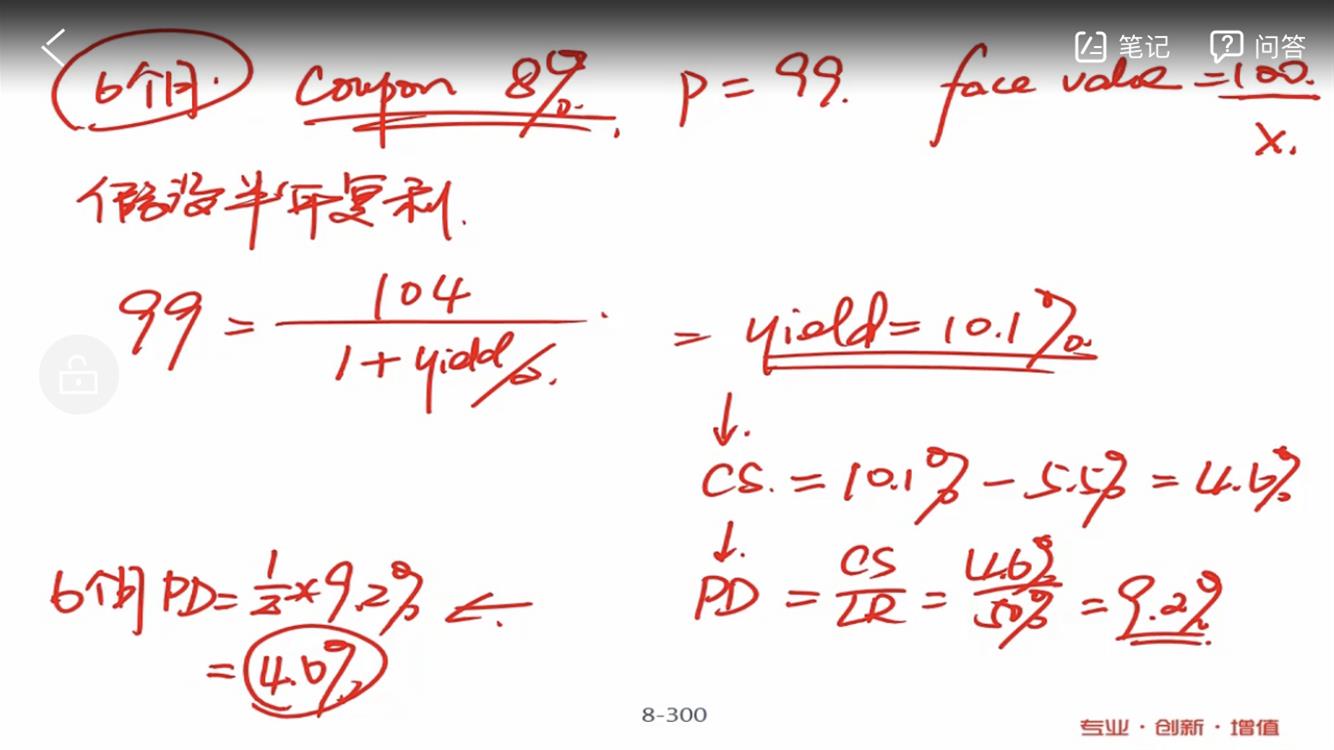 笔记 问答
6个月. Coupon 8%. P = 99. face value = 100.
X.
假设半年复利.
99 = 104 / 1 + yield/2. = yield = 10.1%.
↓.
CS. = 10.1% - 5.5% = 4.6%
↓.
PD = CS / LR = 4.6% / 50% = 9.2%.
6个月 PD = 1/2 × 9.2% ←.
= 4.6%
8-300
专业·创新·增值